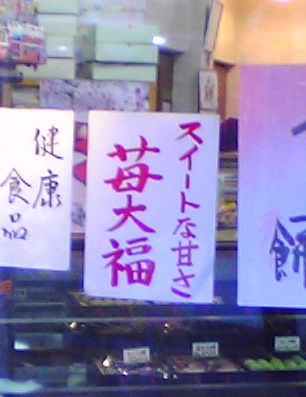 スイートな甘さ
苺大福
健康
食品